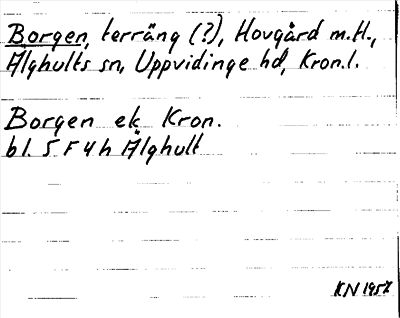 Borgen, terräng (?), Hovgård m.H.,
Älghults sn, Uppvidinge hd, Kron.l.
Borgen ek Kron.
bl. 5 F 4 h Älghult
KN 1957